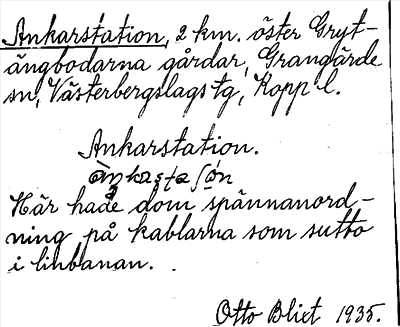 Ankarstation, 2 km. öster Gryt-
ängbodarna gårdar, Grangärde
sn, Västerbergslags tg, Kopp. l.
Ankarstation.
Här hade dom spännanord-
ning på kablarna som sutto
i linbanan.
Otto Blixt 1935.